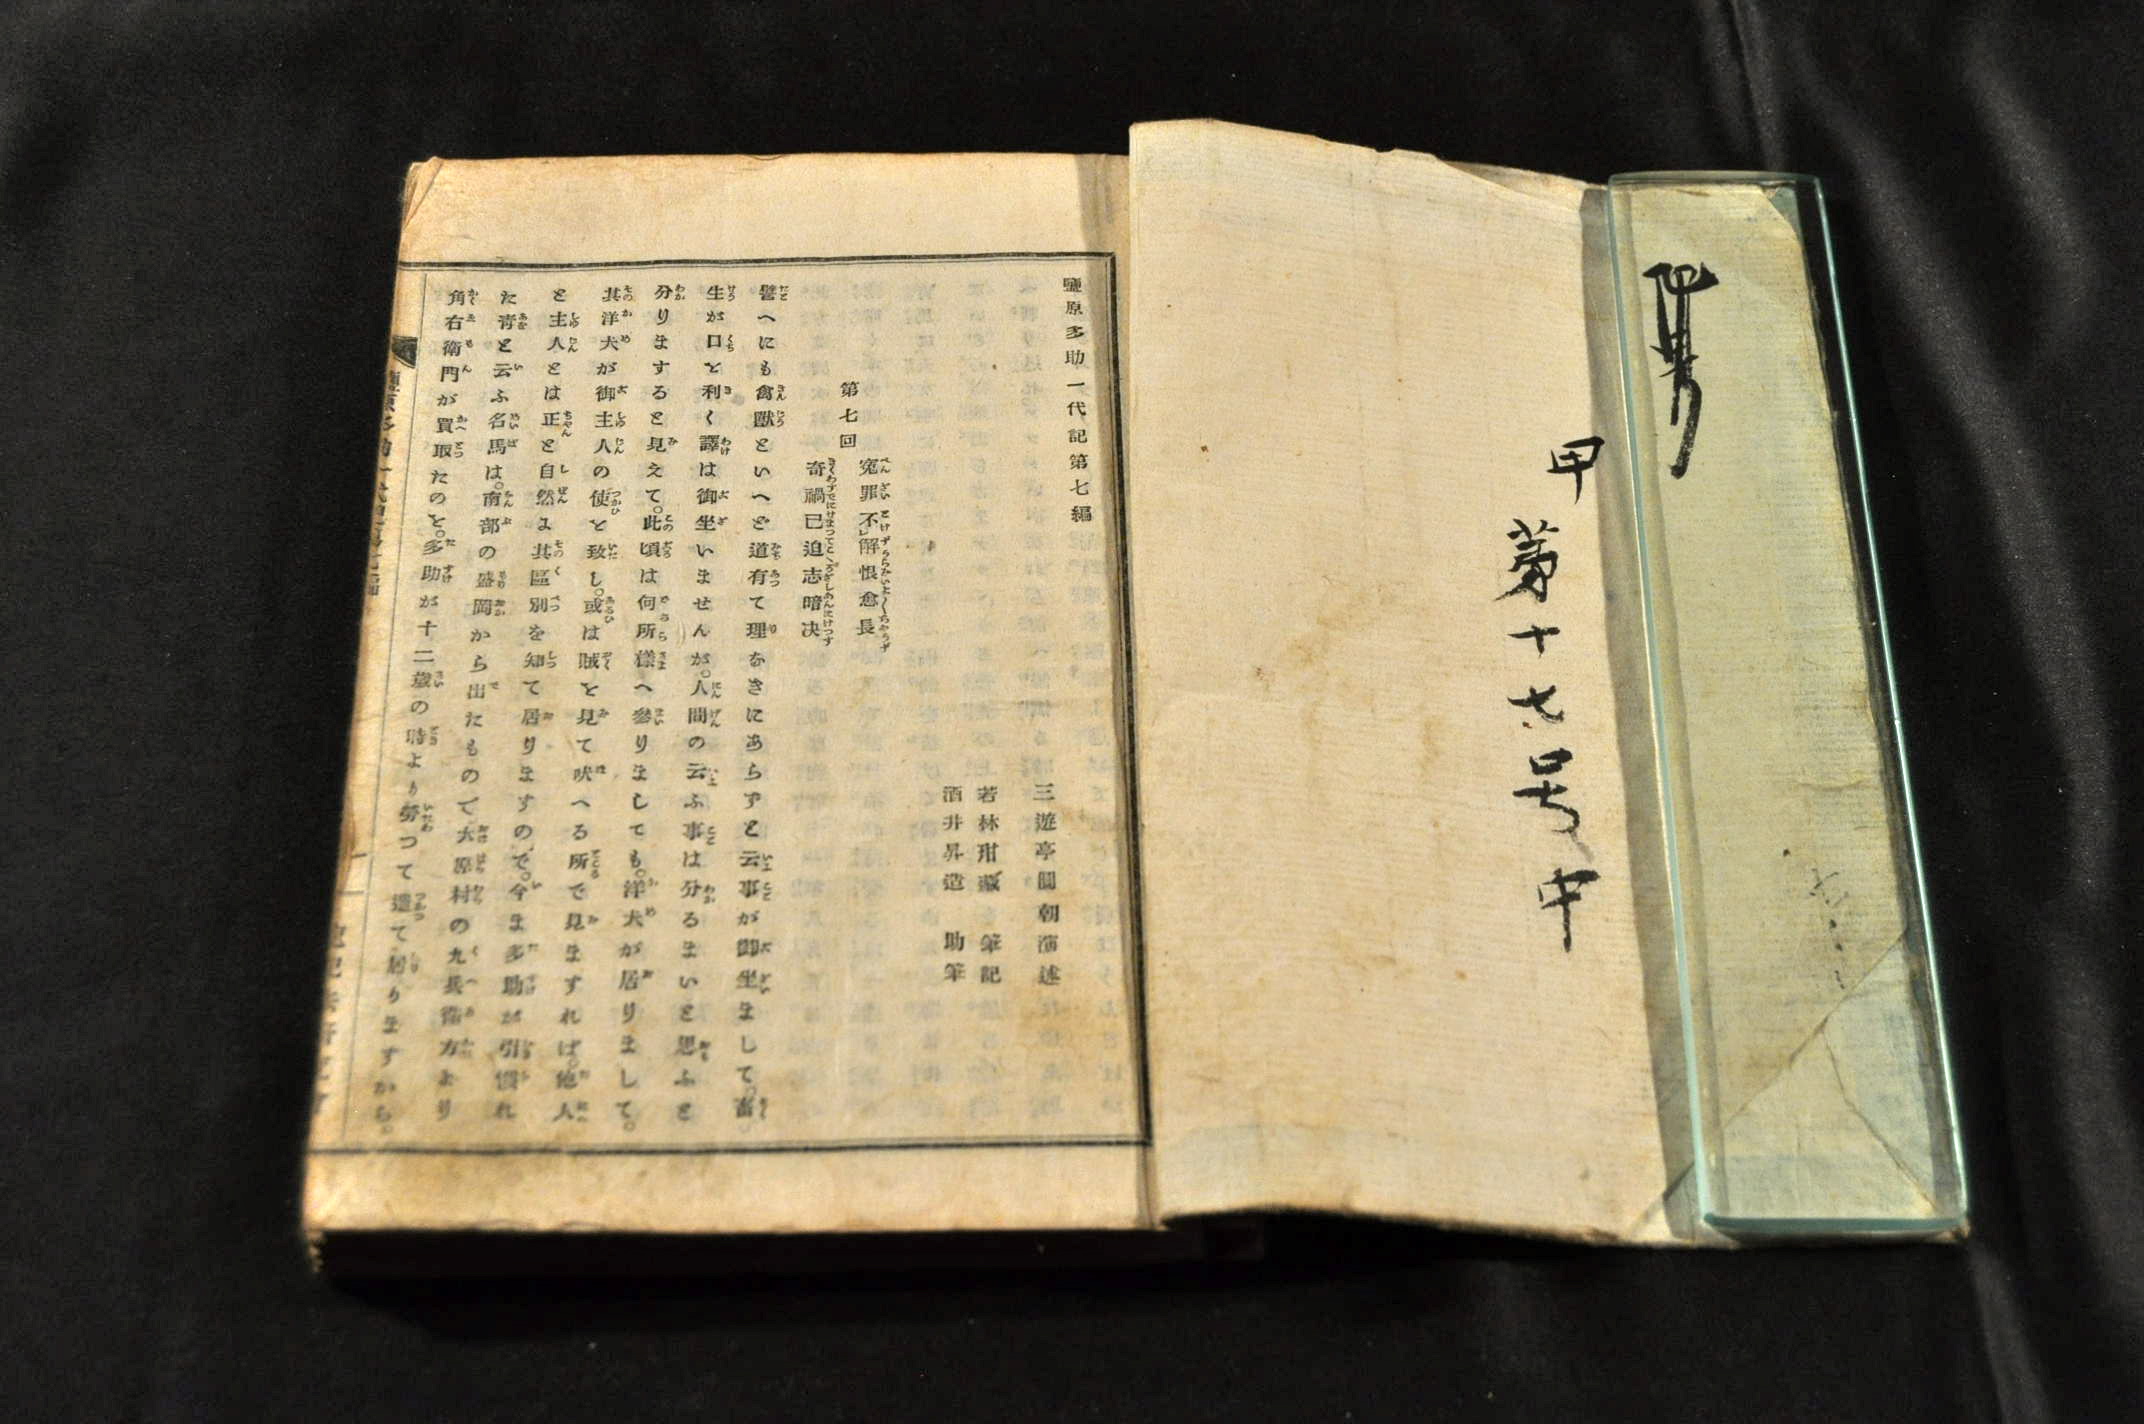 甲第十七号中
鹽原多助一代記第七編
三遊亭圓朝演述
若林玵藏筆記
酒井昇造助筆
第七回
寃罪不解恨愈長
奇禍已迫志暗决
譬へにも禽獸といへど道有て理なきにあらずと云事が御坐まして。畜
生が口を利く譯は御坐いませんが。人間の云ふ事は分るまいと思ふと
分りまするを見えて。此頃は何所樣へ參りましても。洋犬が居りまして。
其洋犬が御主人の使を致し。或は賊を見て吠へる所で見ますれば。他人
と主人とは正と自然よ其區別を知て居りますので。今ま多助が引慣れ
た青と云ふ名馬は。南部の盛岡から出たもので大原村の九兵衛方より
角右衛門が買取たのを。多助が十二歳の時より勞つて遣て居りますから。